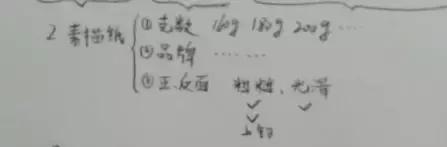 2 素描纸 ①克数 160g 180g 200g ……
②品牌 …… ……
③正反面 粗糙、光滑
上铅